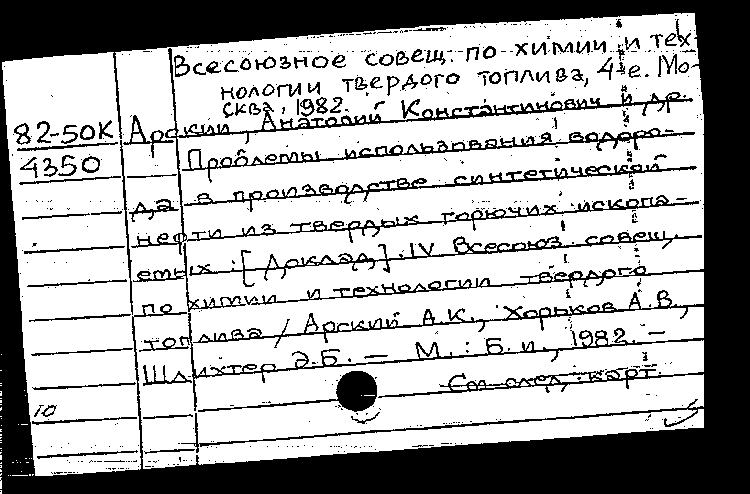 Всесоюзное совещ. по химии и тех
нологии твердого топлива, 4-е. Мо-
сква, 1982.
82-50К Арский, Анатолий Константинович и др.
4350 Проблемы использования водоро-
да в производстве синтетической
нефти из твердых горючих ископа-
емых : [Доклад] : IV Всесоюз. совещ.
по химии и технологии твердого
топлива / Арский А.К., Хорьков А.В.,
Шлихтер Э.Б. — М. : Б. и., 1982. —
См след. карт.
10